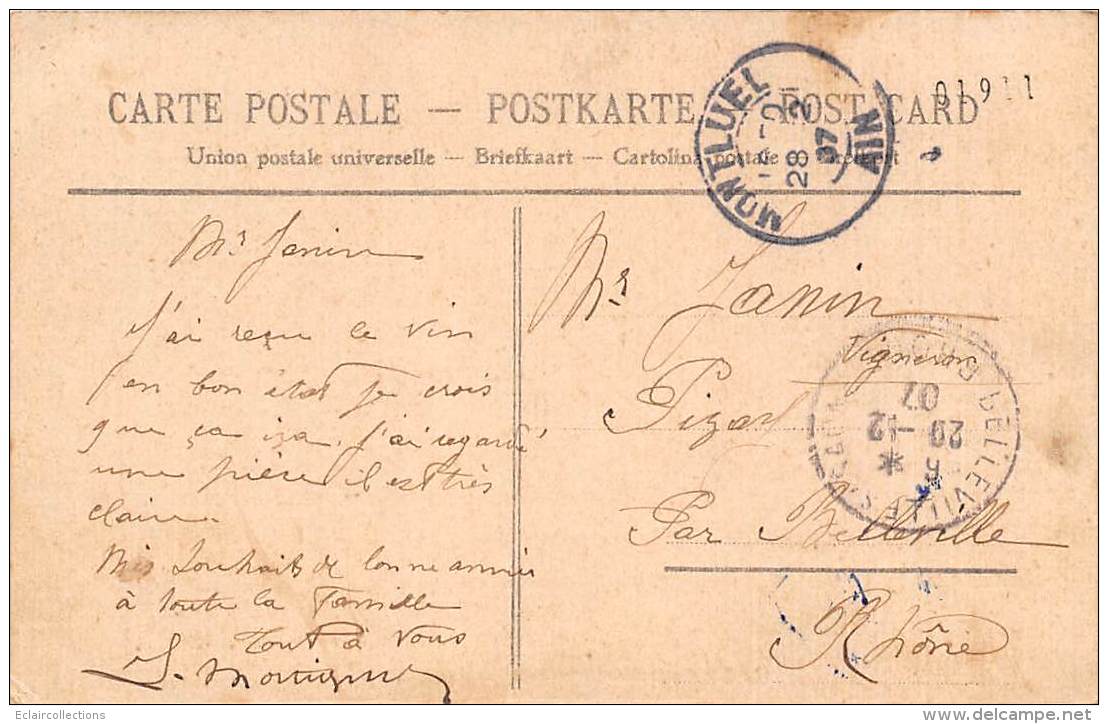 CARTE POSTALE — POSTKARTE — POST CARD
01911
Union postale universelle — Briefkaart — Cartolina postale
MONTLUEL
28 2
07
AIN
Mr Janin
J'ai reçu le vin
en bon état je crois
que ça ira. J'ai regardé
une pièce il est très
claire.
Mes Souhaits de bonne année
à toute la Famille
Tout à Vous
Mr Janin
Vigneron
Pizay
Par Belleville
Rhône
BELLEVILLE S/ SAONE
RHONE
5 *
29 -12
07
Eclaircollections